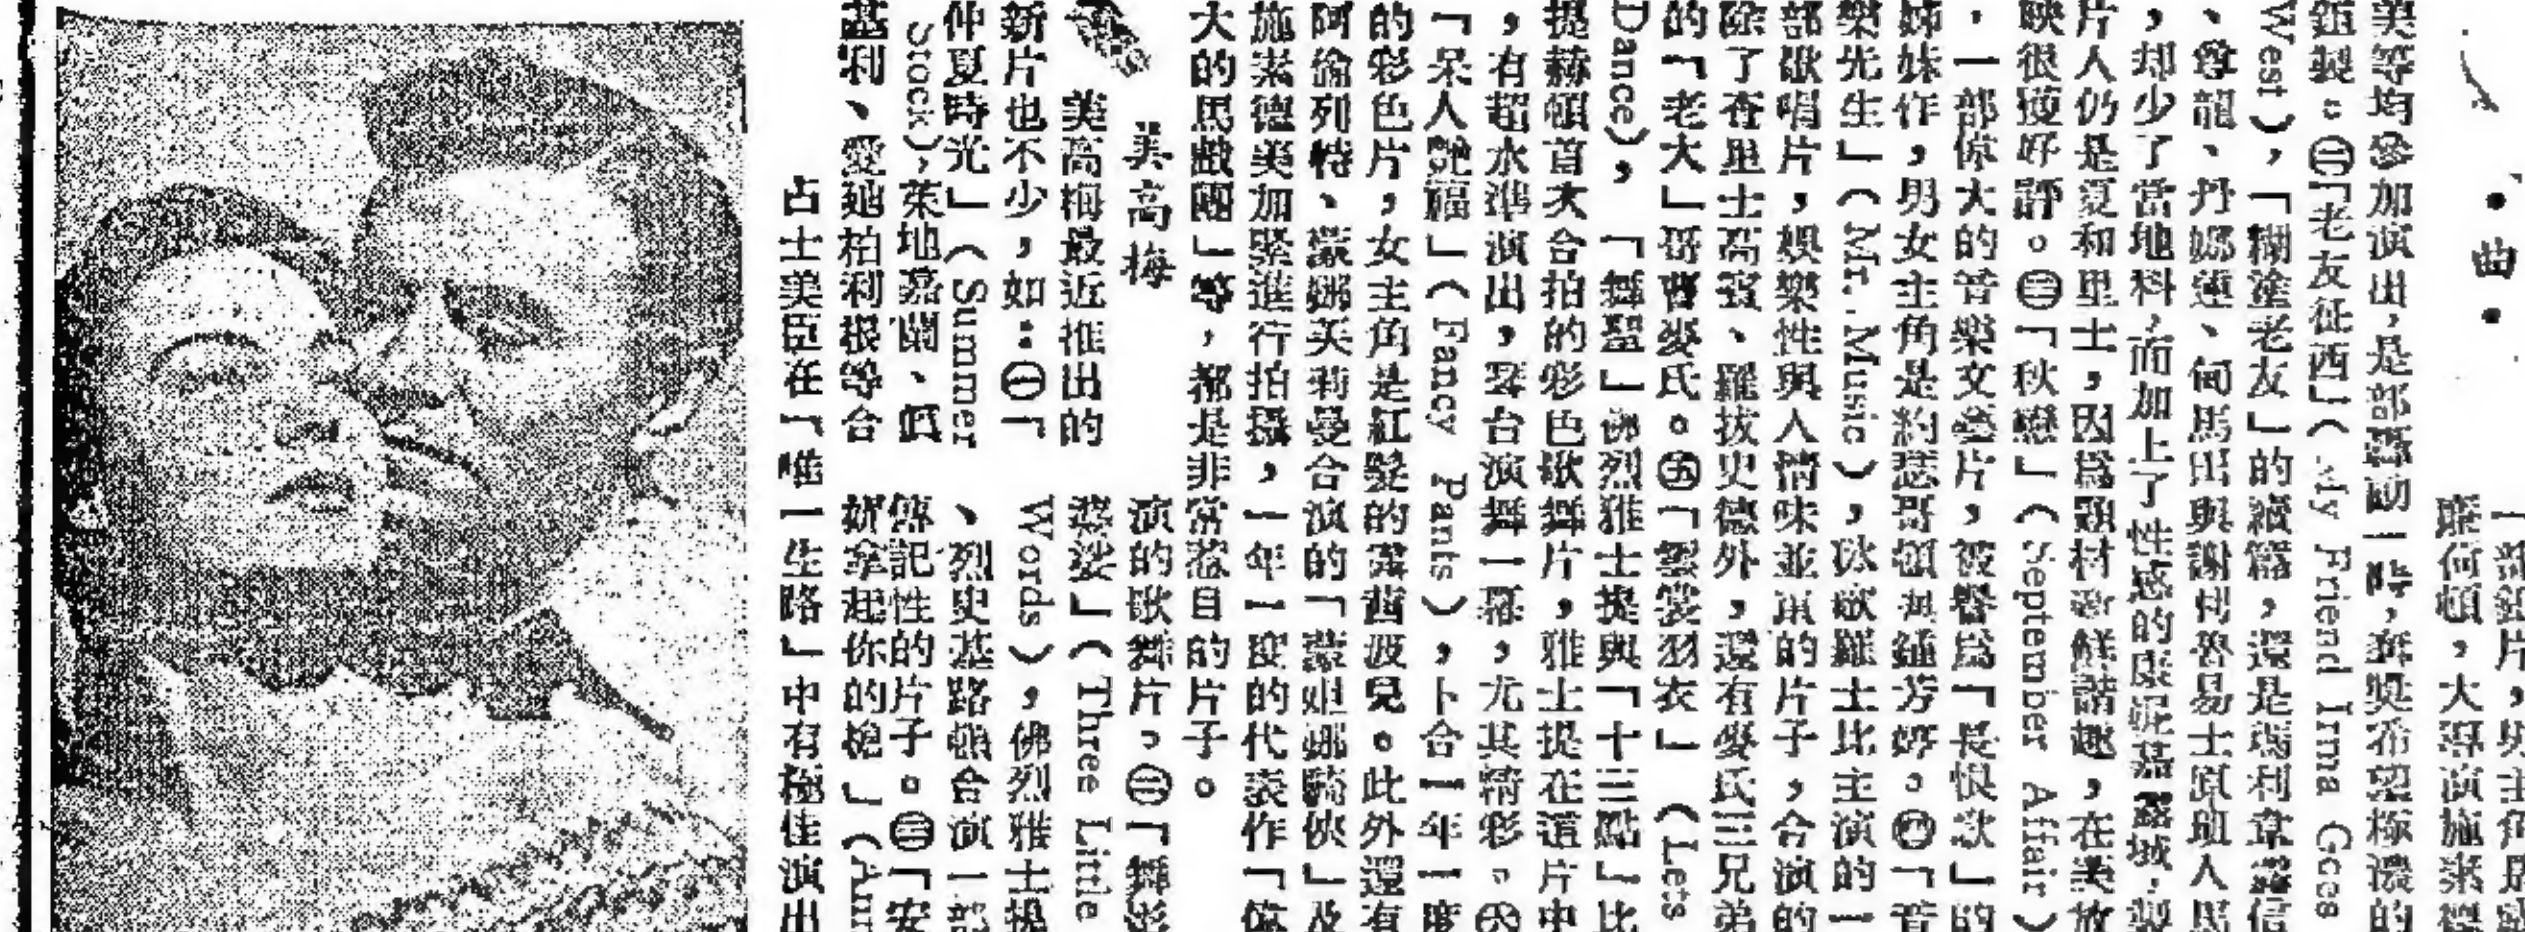 ・曲・
一部鉅片，
龐何頓，大導演施素
美等均參加演出，是部轟動一時，奪奬希望極濃的
鉅製。㊁「老友征西」（My Friend Irma Goes
West），「糊塗老友」的續篇，還是瑪利韋爾信
、尊龍、丹娜連、甸馬田與謝利魯易士原班人馬
，却少了當地料，而加上了性感的康妮嘉露域，製
片人仍是夏和里士，因爲題材新鮮諧趣，在美放
映很獲好評。㊂「秋戀」（September Affair）
，一部偉大的音樂文藝片，被譽爲「長恨歌」的
姊妹作，男女主角是約瑟哥頓與鍾芳婷。㊃「音
樂先生」（Mr. Music），歌羅士比主演的一
部歌唱片，娛樂性與人情味並重的片子，合演的
除了查里士高賓、羅拔史德外，還有麥氏三兄弟
的「老大」哥曹麥氏。㊄「霓裳羽衣」（Lets
Dance），「舞聖」佛烈雅士提與「十三點」比
提赫頓首次合拍的彩色歌舞片，雅士提在這片中
，有超水準演出，琴台演舞一幕，尤其精彩。㊅
「呆人艷福」（Fancy Pants），卜合一年一度
的彩色片，女主角是紅髮的露茜波兒。此外還有
阿倫列特、蒙娜芙莉曼合演的「蒙妲娜騎俠」及
施素德美加緊進行拍攝，一年一度的代表作「偉
大的馬戲團」等，都是非常惹目的片子。
美高梅
美高梅最近推出的
新片也不少，如：㊀「
仲夏時光」（Summer
Stock），茱地嘉蘭、眞
基利、愛迪柏利根等合
演的歌舞片，㊁「舞影
婆娑」（Three Little
Words），佛烈雅士提
、烈史基路頓合演一部
傳記性的片子。㊂「安
妮拿起你的槍」（Ann
占士美臣在「唯一生路」中有極佳演出